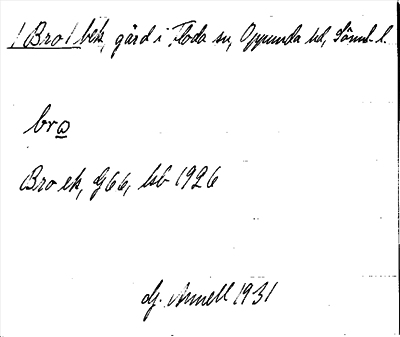 /Bro/ bek, gård i Floda sn, Oppunda hd, Sömnl. l.
bro
Bro ek, G66, hb 1926
Dj. Annell 1931